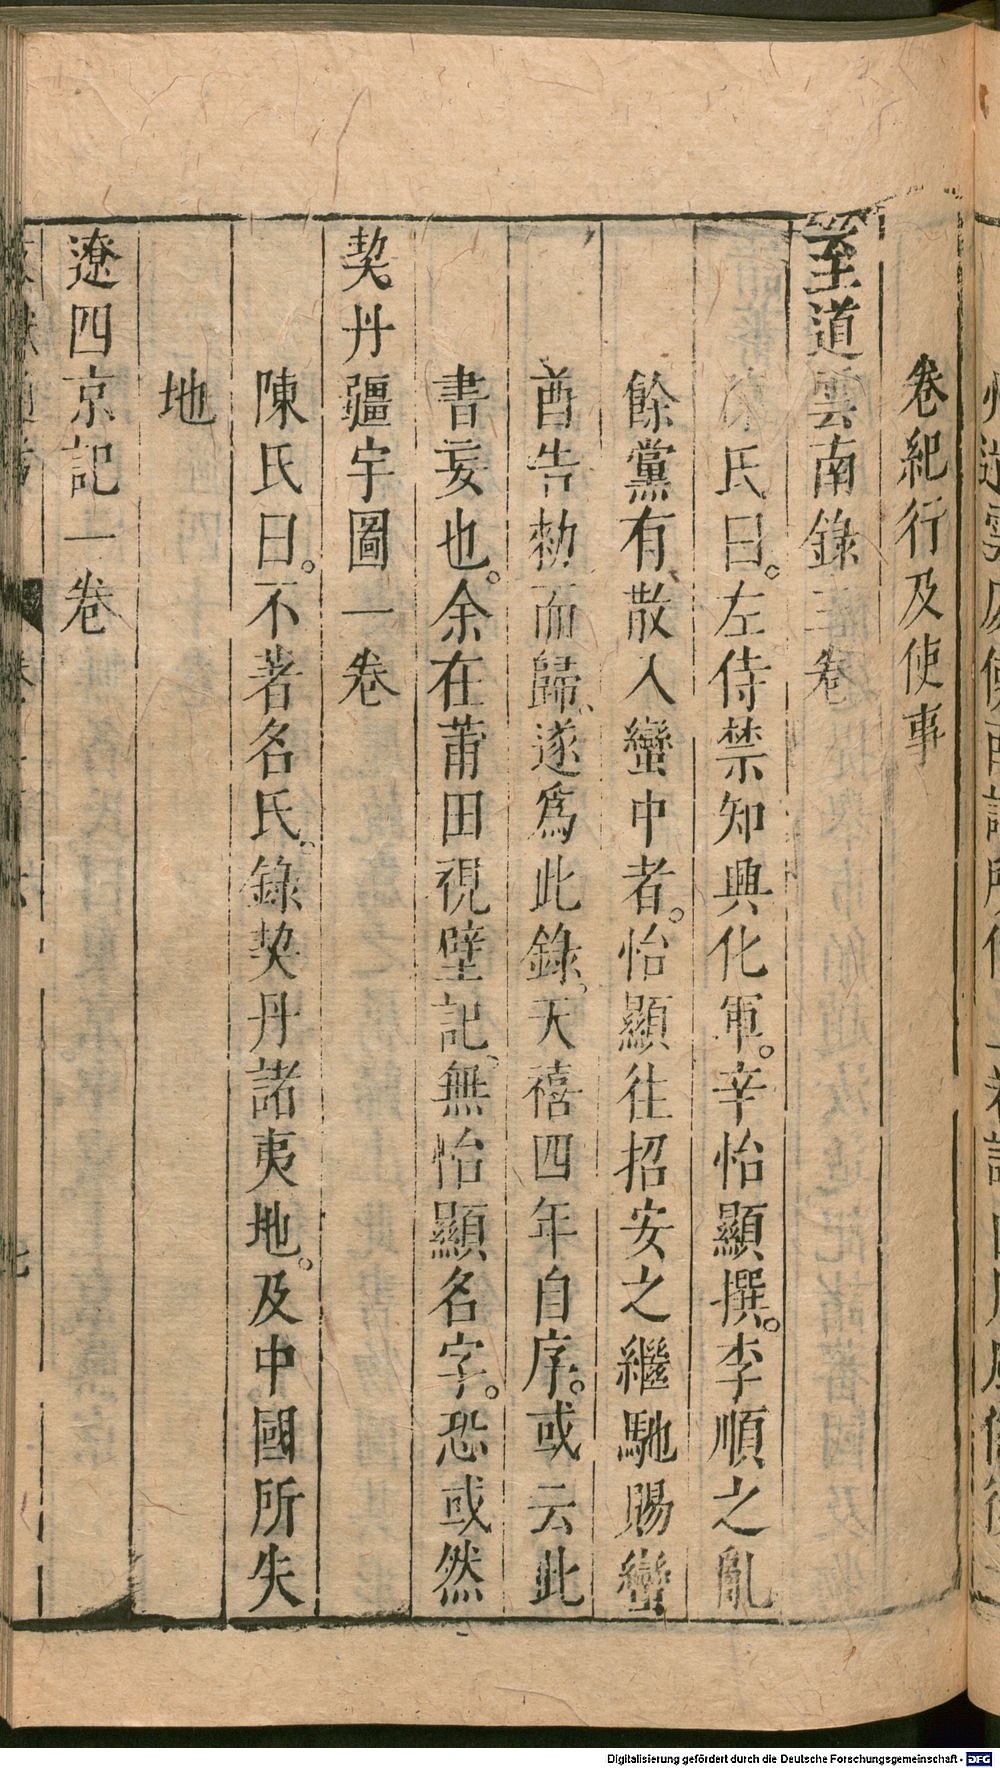 卷紀行及使事
至道雲南錄三卷
陳氏曰。左侍禁知興化軍。辛怡顯撰。李順之亂
餘黨有散入蠻中者。怡顯往招安之繼馳賜蠻
酋告勑而歸、遂爲此錄。天禧四年自序。或云此
書妄也。余在莆田視壁記、無怡顯名字。恐或然
契丹疆宇圖一卷
陳氏曰。不著名氏。錄契丹諸夷地。及中國所失
地
遼四京記一卷
Digitalisierung gefördert durch die Deutsche Forschungsgemeinschaft - DFG